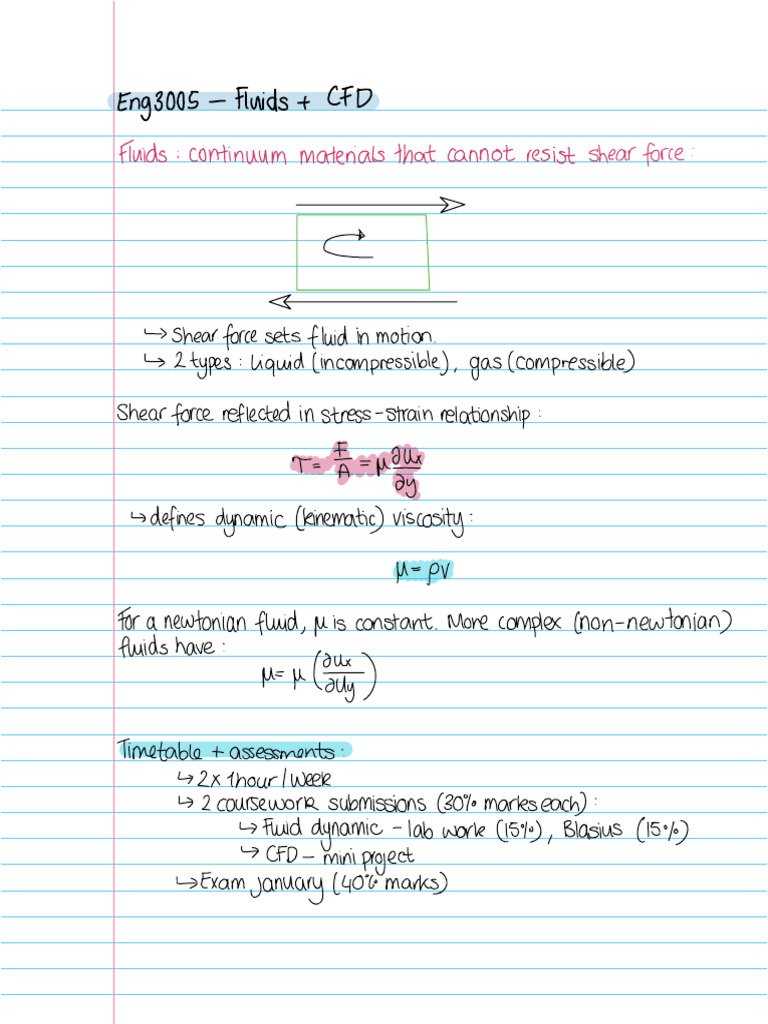 Eng3005 – Fluids + CFD
Fluids: continuum materials that cannot resist shear force:
↳ Shear force sets fluid in motion.
↳ 2 types: liquid (incompressible), gas (compressible)
Shear force reflected in stress-strain relationship:
τ = F/A = μ ∂Ux/∂y
↳ defines dynamic (kinematic) viscosity:
μ = ρν
For a newtonian fluid, μ is constant. More complex (non-newtonian)
fluids have:
μ = μ (∂Ux/∂Uy)
Timetable + assessments:
↳ 2 x 1hour / week
↳ 2 coursework submissions (30% marks each):
↳ Fluid dynamic – lab work (15%), Blasius (15%)
↳ CFD – mini project
↳ Exam january (40% marks)